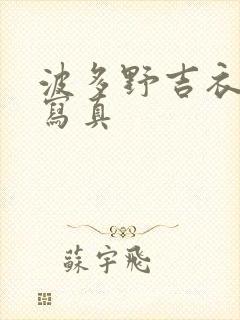 波多野吉衣
寫真
蘇宇飛